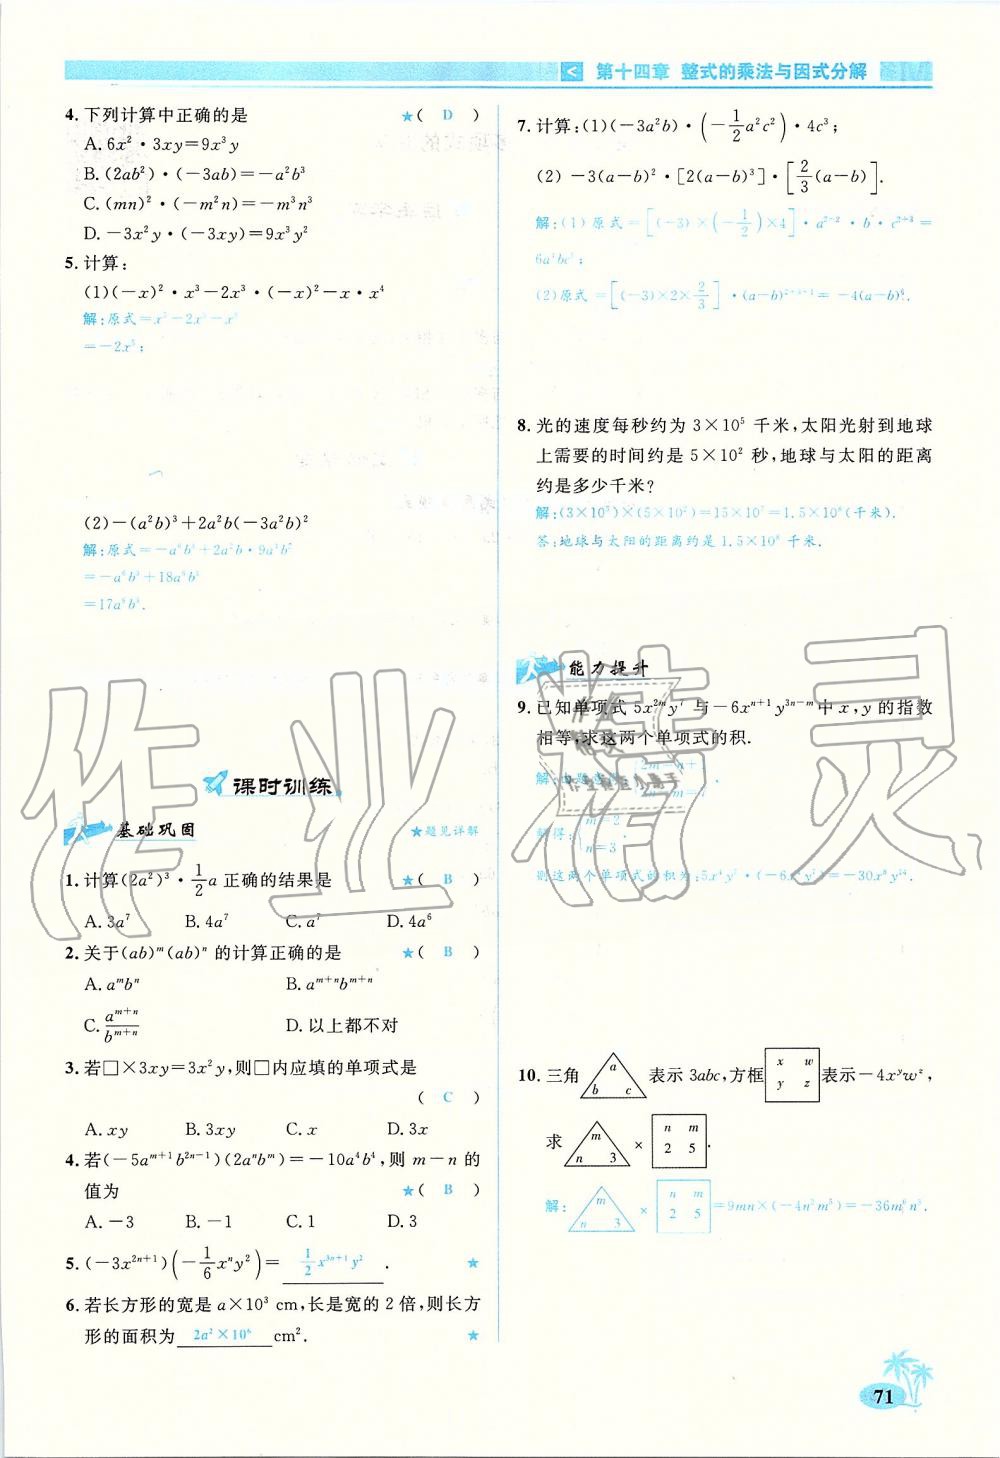 第十四章 整式的乘法与因式分解
4. 下列计算中正确的是 ★( D )
A. 6x²·3xy=9x³y
B. (2ab²)·(-3ab)=-a²b³
C. (mn)²·(-m²n)=-m³n³
D. -3x²y·(-3xy)=9x³y²
5. 计算:
(1)(-x)²·x³-2x³·(-x)²-x·x⁴
解:原式=x⁵-2x⁵-x⁵
=-2x⁵;
(2)-(a²b)³+2a²b(-3a²b)²
解:原式=-a⁶b³+2a²b·9a⁴b²
=-a⁶b³+18a⁶b³
=17a⁶b³.
课时训练
基础巩固 ★题见详解
1. 计算(2a²)³·1/2 a 正确的结果是 ★( B )
A. 3a⁷ B. 4a⁷ C. a⁷ D. 4a⁶
2. 关于(ab)ᵐ(ab)ⁿ 的计算正确的是 ★( B )
A. aᵐbⁿ B. aᵐ⁺ⁿbᵐ⁺ⁿ
C. aᵐ⁺ⁿ/bᵐ⁺ⁿ D. 以上都不对
3. 若□×3xy=3x²y,则□内应填的单项式是
( C )
A. xy B. 3xy C. x D. 3x
4. 若(-5aᵐ⁺¹b²ⁿ⁻¹)(2aⁿbᵐ)=-10a⁴b⁴,则 m-n 的
值为 ★( B )
A. -3 B. -1 C. 1 D. 3
5. (-3x²ⁿ⁺¹)(-1/6 xⁿy²)= 1/2 x³ⁿ⁺¹y² . ★
6. 若长方形的宽是 a×10³ cm,长是宽的 2 倍,则长方
形的面积为 2a²×10⁶ cm². ★
7. 计算:(1)(-3a²b)·(-1/2 a²c²)·4c³;
(2) -3(a-b)²·[2(a-b)³]·[2/3(a-b)].
解:(1)原式=[(-3)×(-1/2)×4]·a²⁺²·b·c²⁺³=
6a⁴bc⁵;
(2)原式=[(-3)×2×2/3]·(a-b)²⁺³⁺¹=-4(a-b)⁶.
8. 光的速度每秒约为 3×10⁵ 千米,太阳光射到地球
上需要的时间约是 5×10² 秒,地球与太阳的距离
约是多少千米?
解:(3×10⁵)×(5×10²)=15×10⁷=1.5×10⁸(千米).
答:地球与太阳的距离约是 1.5×10⁸ 千米.
能力提升
9. 已知单项式 5x²ᵐy⁷ 与-6xⁿ⁺¹y³ⁿ⁻ᵐ中 x,y 的指数
相等,求这两个单项式的积.
解:由题意得:
解得:{m=2
n=3.
则这两个单项式的积为:5x⁴y⁷·(-6x⁴y⁷)=-30x⁸y¹⁴.
10. 三角 a b c 表示 3abc,方框 x w y z 表示-4xʸwᶻ,
求 m n 3 × n m 2 5 .
解: m n 3 × n m 2 5 =9mn×(-4n²m⁵)=-36m⁶n³.
71
作业精灵